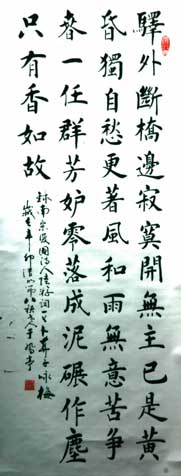 驛外斷橋邊寂寞開無主已是黃
昏獨自愁更著風和雨無意苦爭
春一任群芳妒零落成泥碾作塵
只有香如故
南宋爱国诗人陸游詞一首卜算子咏梅